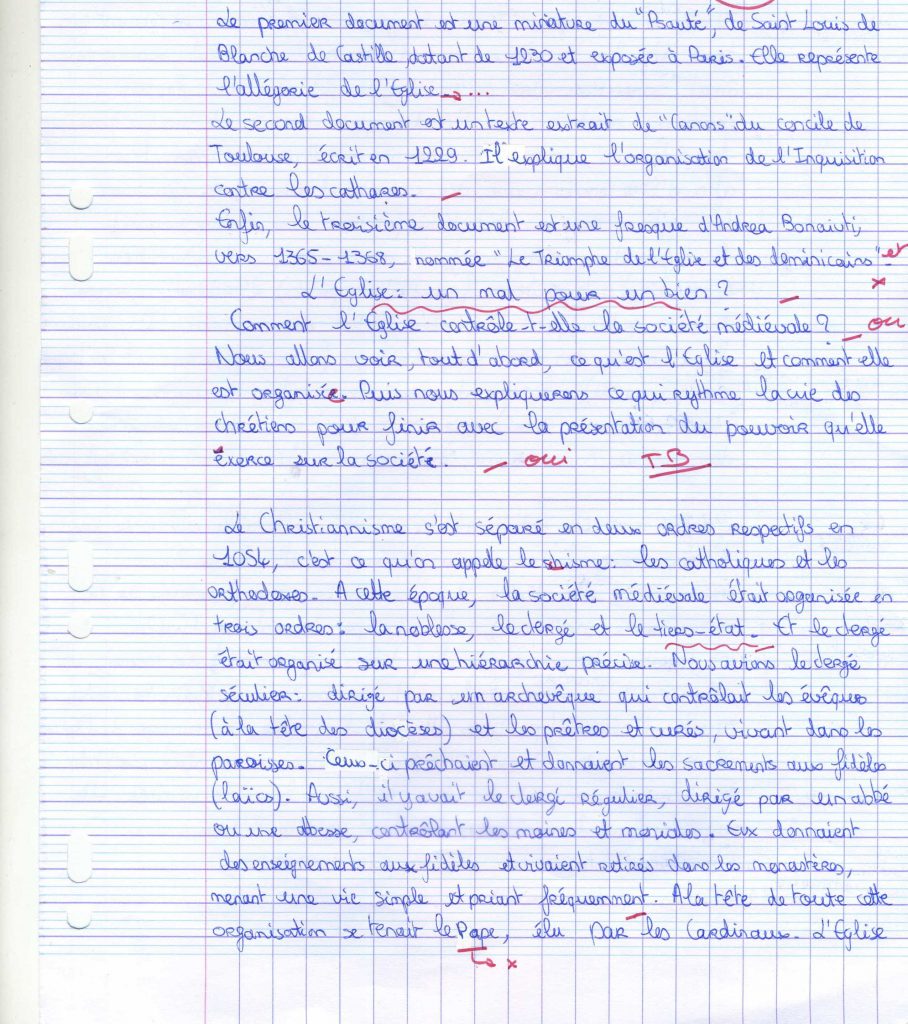 Le premier document est une miniature du "Psauté", de Saint Louis de
Blanche de Castille, datant de 1230 et exposée à Paris. Elle représente
l'allégorie de l'Eglise → ...
Le second document est un texte extrait de "Canons" du concile de
Toulouse, écrit en 1229. Il explique l'organisation de l'Inquisition
contre les cathares.
Enfin, le troisième document est une fresque d'Andrea Bonaiuti,
vers 1365-1368, nommée "Le Triomphe de l'Eglise et des dominicains" et
L'Eglise : un mal pour un bien ? x
Comment l'Eglise contrôle-t-elle la société médiévale ? oui
Nous allons voir, tout d'abord, ce qu'est l'Eglise et comment elle
est organisée. Puis nous expliquerons ce qui rythme la vie des
chrétiens pour finir avec la présentation du pouvoir qu'elle
exerce sur la société. oui TB
Le Christiannisme s'est séparé en deux ordres respectifs en
1054, c'est ce qu'on appelle le shisme : les catholiques et les
orthodoxes. A cette époque, la société médiévale était organisée en
trois ordres : la noblesse, le clergé et le tiers-état. Et le clergé
était organisé sur une hiérarchie précise. Nous avions le clergé
séculier : dirigé par un archevêque qui contrôlait les évêques
(à la tête des diocèses) et les prêtres et curés, vivant dans les
paroisses. Ceux-ci prêchaient et donnaient les sacrements aux fidèles
(laïcs). Aussi, il y avait le clergé régulier, dirigé par un abbé
ou une abbesse, contrôlant les moines et moniales. Eux donnaient
des enseignements aux fidèles et vivaient retirés dans les monastères,
menant une vie simple et priant fréquemment. A la tête de toute cette
organisation se tenait le Pape, élu par les Cardinaux. L'Eglise
x